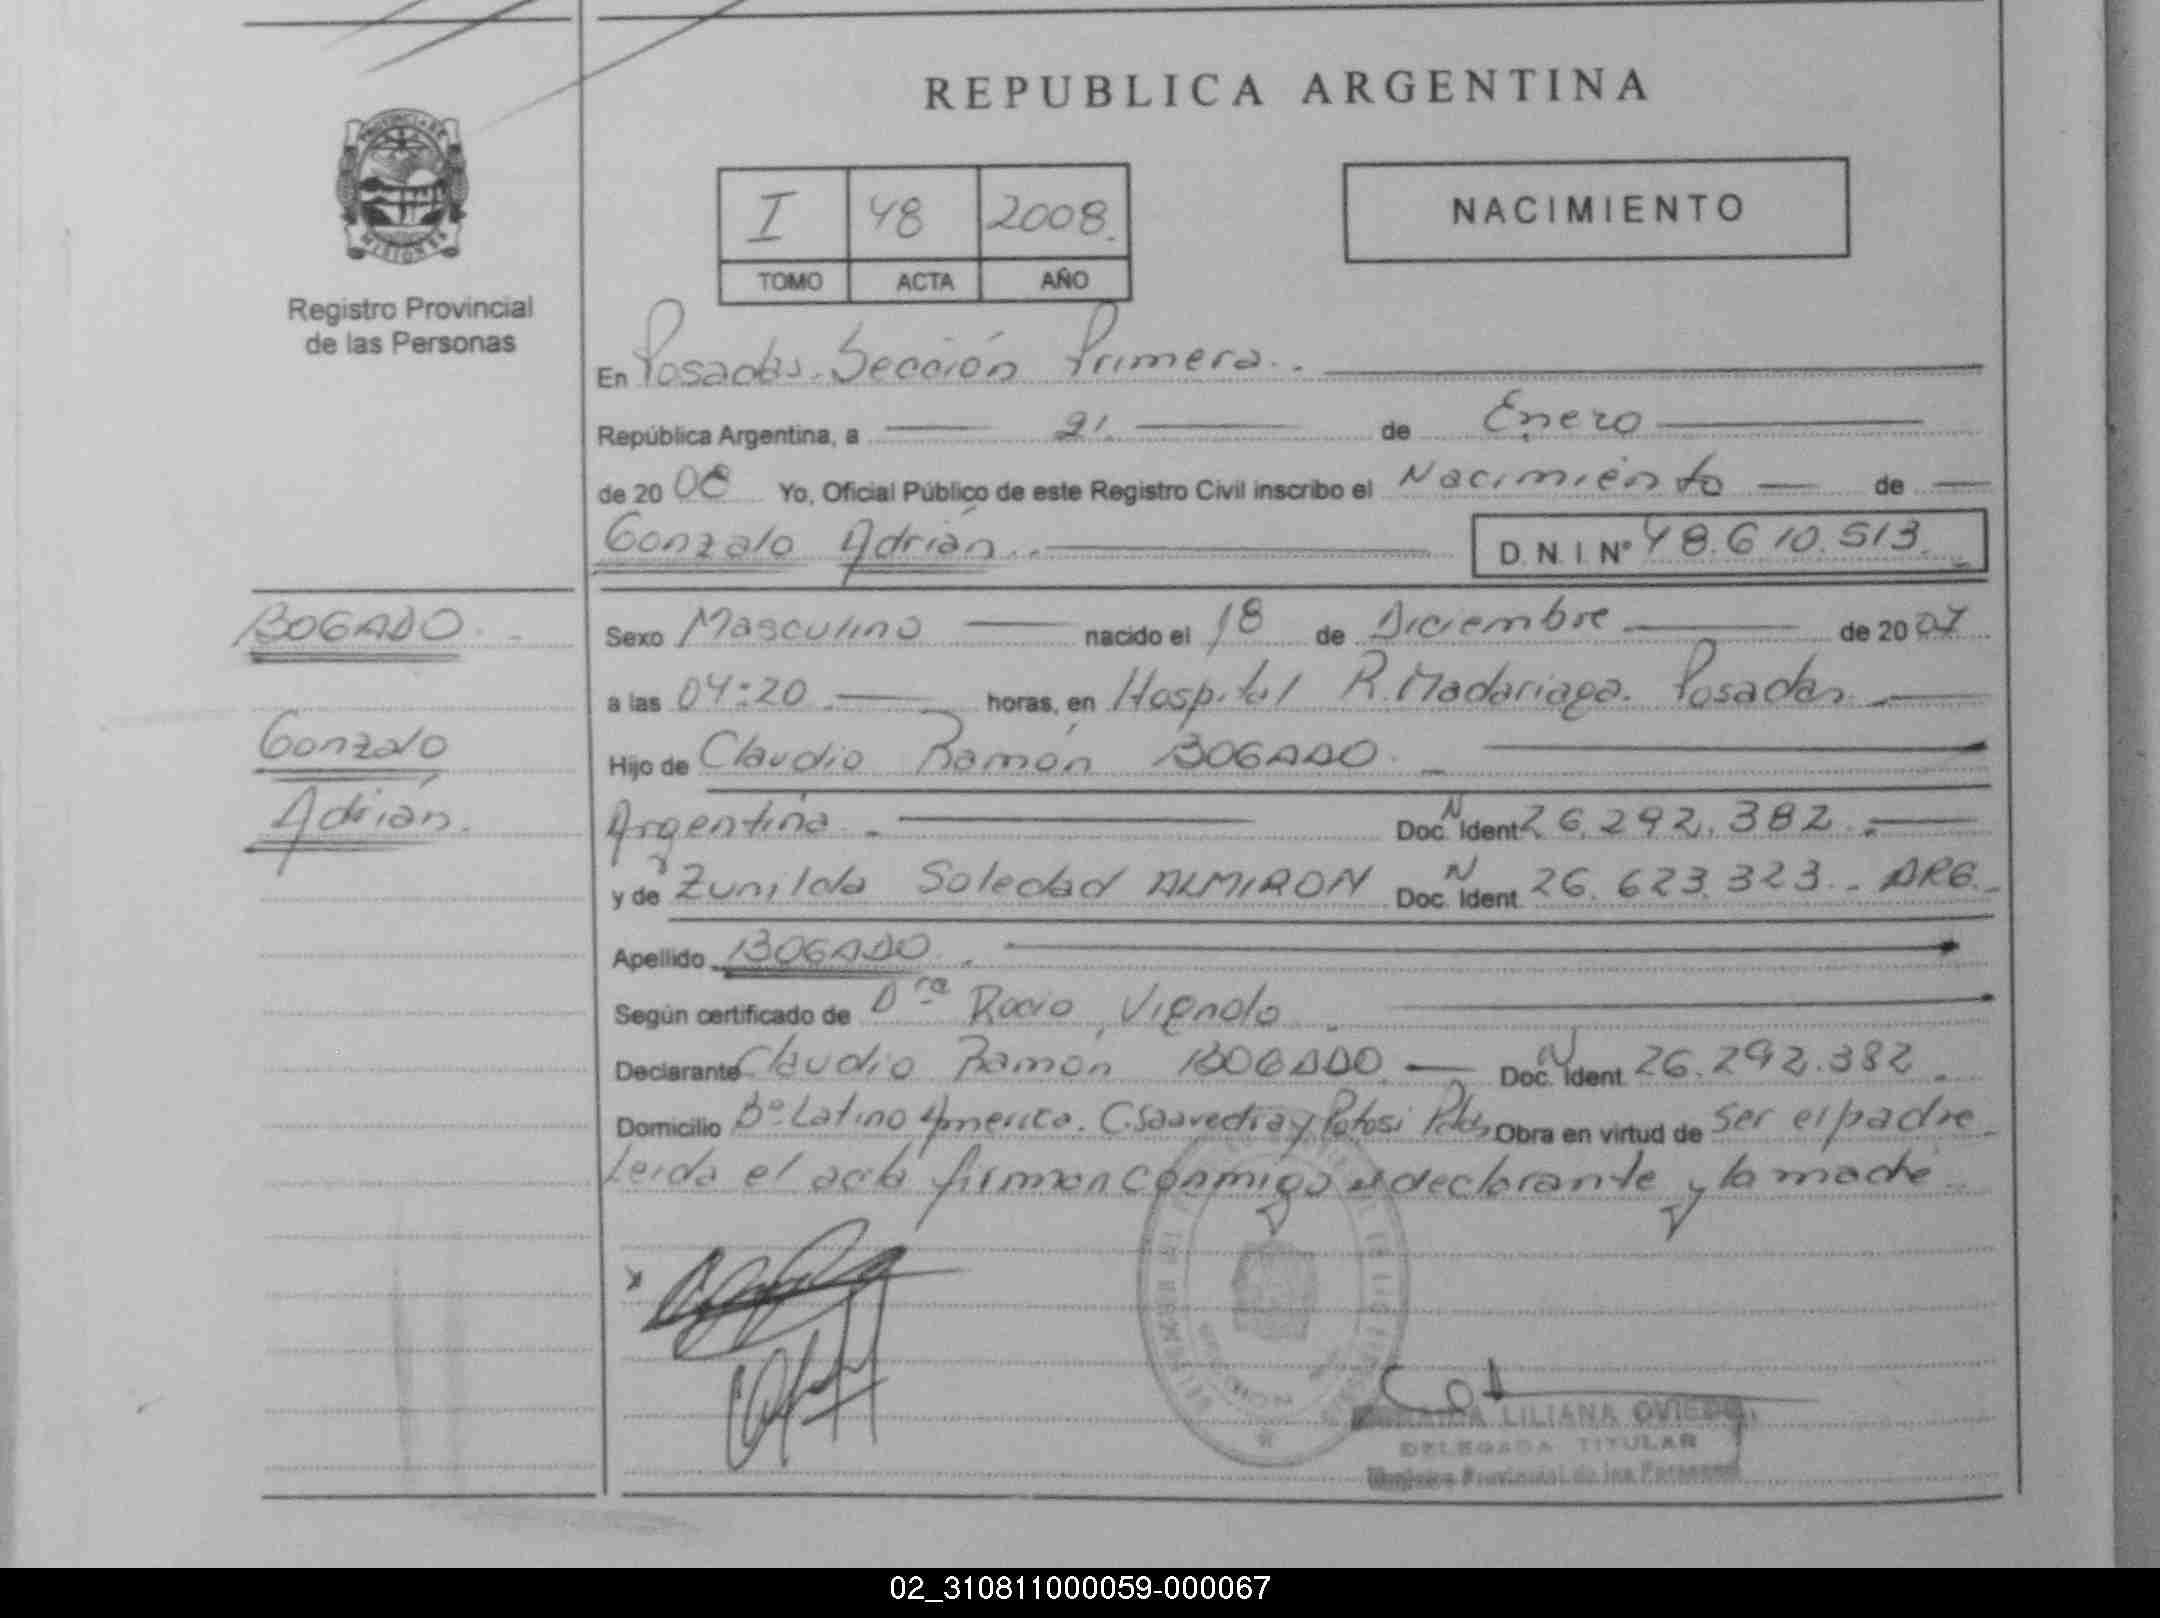 REPUBLICA ARGENTINA
PROVINCIA DE
MISIONES
Registro Provincial
de las Personas
I 48 2008.
TOMO ACTA AÑO
NACIMIENTO
En Posadas. Sección Primera..
República Argentina, a 21. de Enero
de 20 08 Yo, Oficial Público de este Registro Civil inscribo el Nacimiento de
Gonzalo Adrián.. D.N.I. Nº 48.610.513.
BOGADO.
Gonzalo
Adrián.
Sexo Masculino nacido el 18 de Diciembre de 20 07
a las 04:20 horas, en Hospital R. Madariaga. Posadas
Hijo de Claudio Ramón BOGADO.
Argentina. Doc. N Ident 26.292.382.
y de Zunilda Soledad ALMIRON Doc. N Ident. 26.623.323.. ARG.
Apellido BOGADO.
Según certificado de Dra Rocio Vignolo.
Declarante Claudio Ramón BOGADO. Doc. N Ident. 26.292.382.
Domicilio Bº Latino America. C. Saavedra y Potosi Pdas Obra en virtud de Ser el padre
Leida el acta firman conmigo el declarante y la madre
LILIANA OVIEDO
DELEGADA TITULAR
Registro Provincial de las Personas
02_310811000059-000067